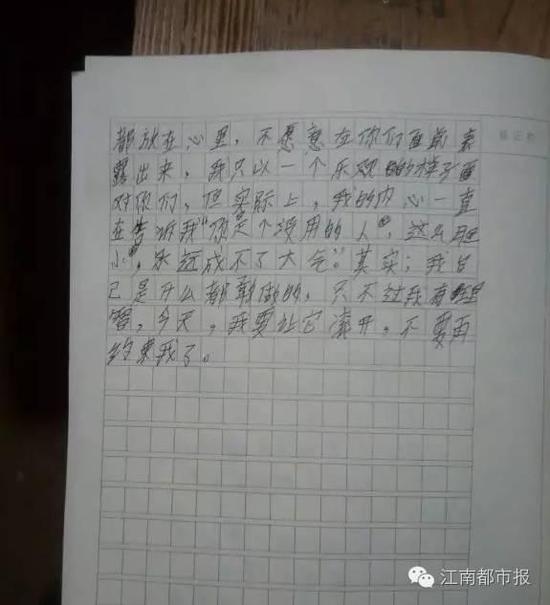 都放在心里，不愿意在你们面前表
露出来，我只以一个乐观的样子面
对你们，但实际上，我的内心一直
在告诉我“你是个没用的人，这么胆
小，永远成不了大气。”其实，我自
己是什么都敢做的，只不过我有
雷，今天，我要让它滚开，不要再
约束我了。
江南都市报